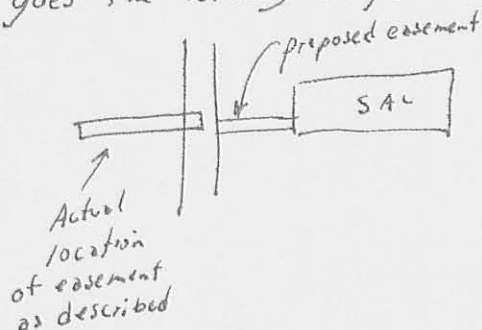 goes the
proposed easement
SAL
Actual
location
of easement
as described